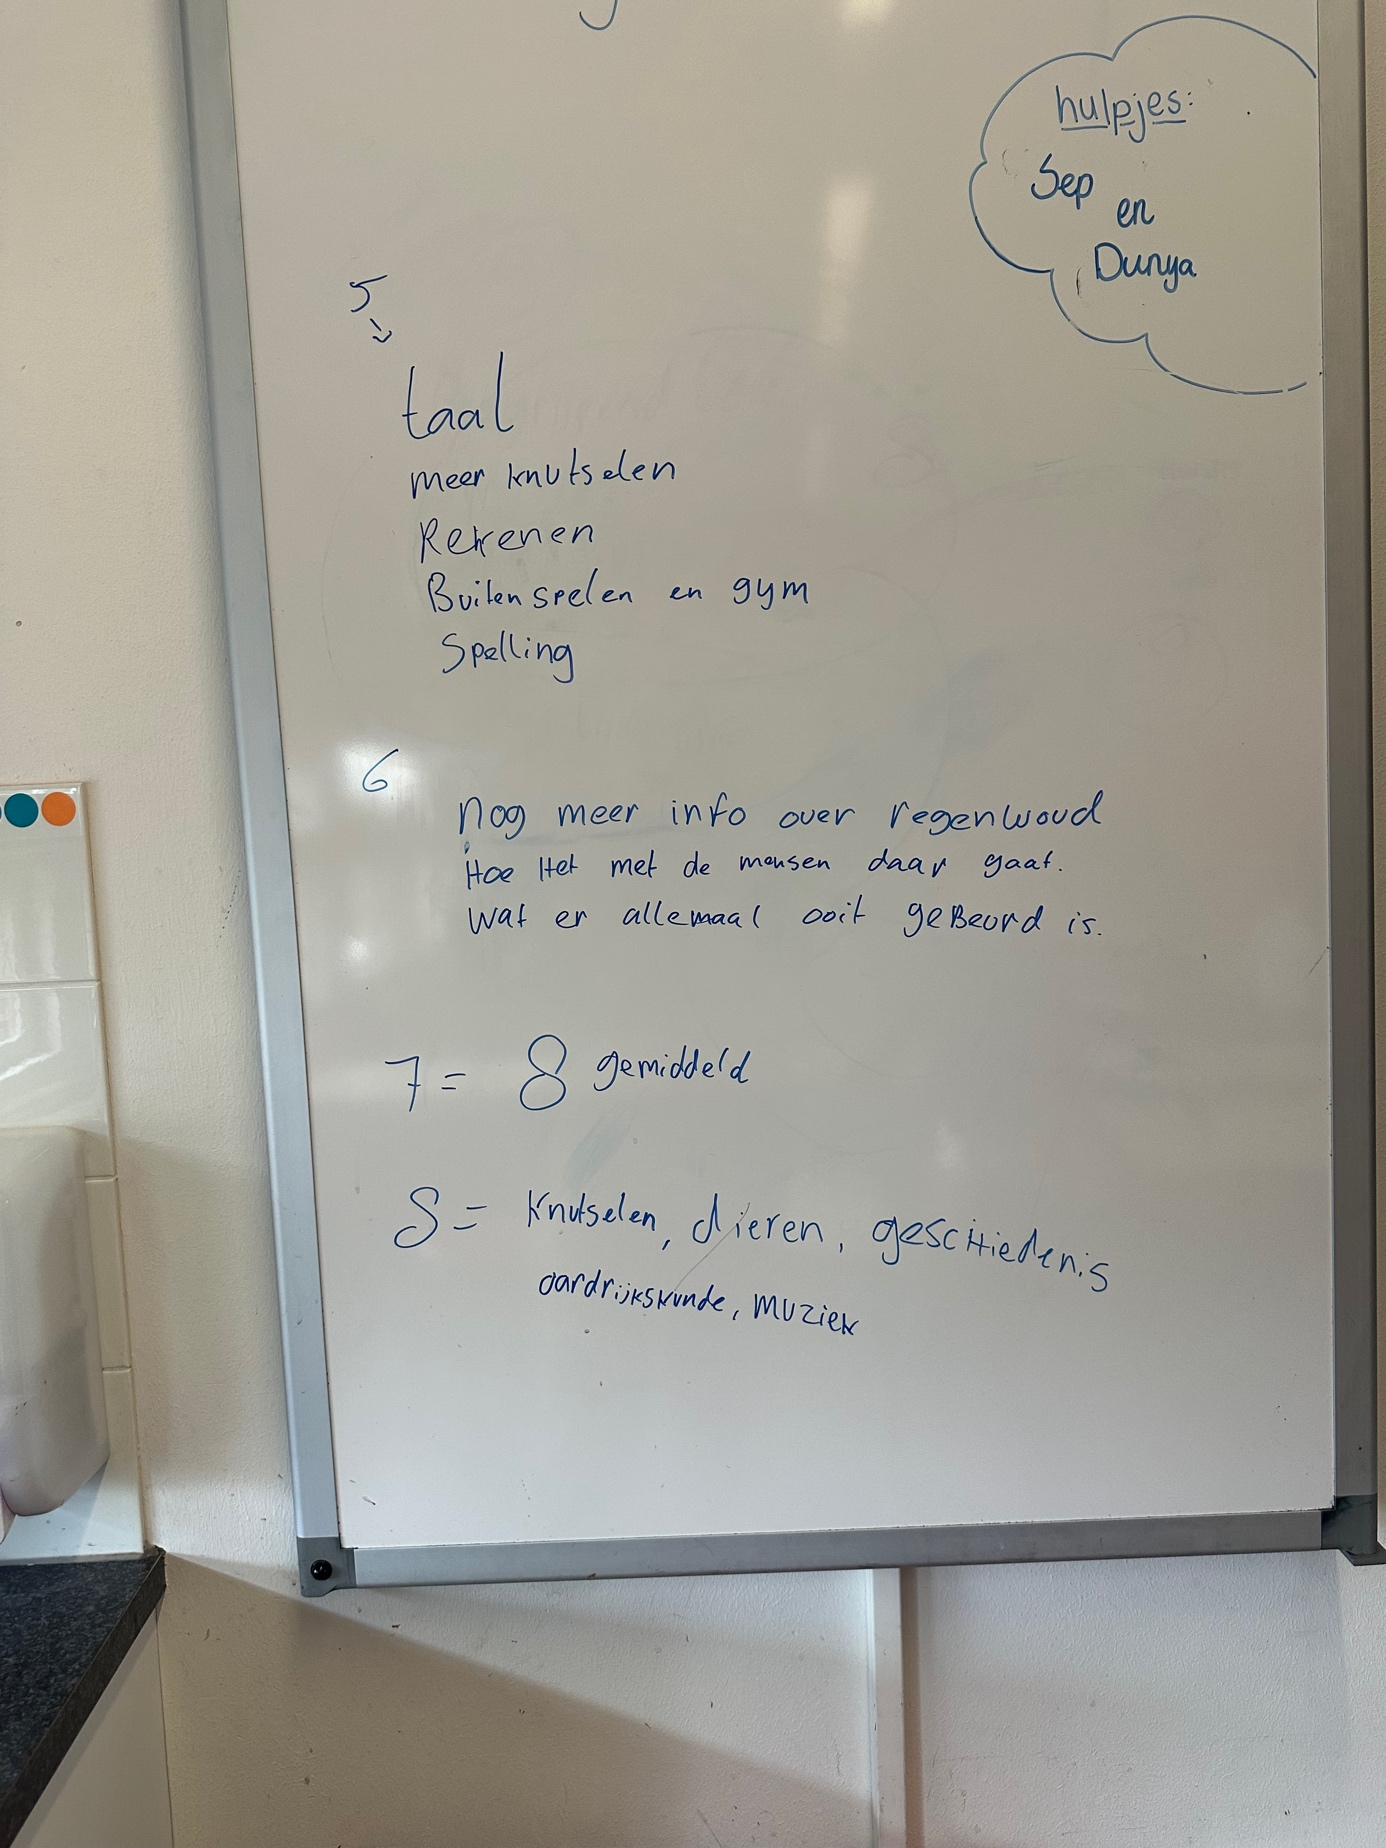 hulpjes:
Sep
en
Dunya
5
taal
meer knutselen
Rekenen
Buitenspelen en gym
Spelling
6
nog meer info over regenwoud
Hoe Het met de mensen daar gaat.
wat er allemaal ooit geBeurd is.
7 = 8 gemiddeld
8 = Knutselen, dieren, gescHiedenis
aardrijkskunde, muziek